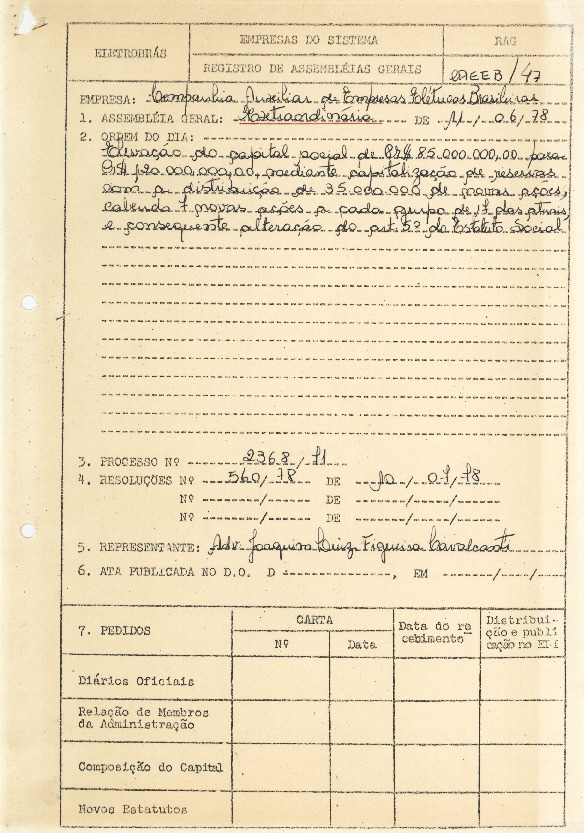 ELETROBRÁS
EMPRESAS DO SISTEMA
RAG
REGISTRO DE ASSEMBLÉIAS GERAIS
CAEEB/47
EMPRESA: Companhia Auxiliar de Empresas Elétricas Brasileiras
1. ASSEMBLÉIA GERAL: Extraordinária DE 11/06/78
2. ORDEM DO DIA:
Elevação do capital social de CR$ 85.000.000,00 para
CR$ 120.000.000,00, mediante capitalização de reservas
com a distribuição de 35.000.000 de novas ações,
cabendo 7 novas ações a cada grupo de 17 das atuais,
e consequente alteração do art. 5º do Estatuto Social
3. PROCESSO Nº 2368/71
4. RESOLUÇÕES Nº 560/78 DE 07/78
Nº / DE / /
Nº / DE / /
5. REPRESENTANTE: Adv. Joaquim Luiz Figueira Cavalcanti
6. ATA PUBLICADA NO D.O. D , EM / /
7. PEDIDOS
CARTA
Nº
Data
Data do re
cebimento
Distribui-
ção e publi
cação no
Diários Oficiais
Relação de Membros
da Administração
Composição do Capital
Novos Estatutos